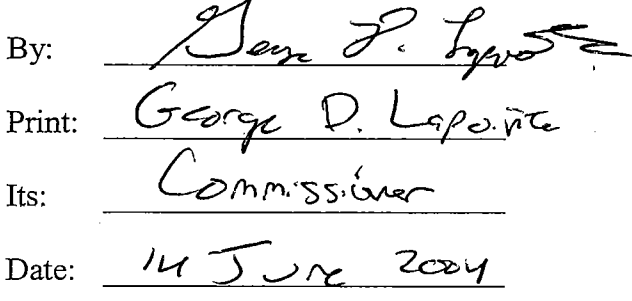 By: George D. Lapointe
Print: George D. Lapointe
Its: Commissioner
Date: 14 June 2004